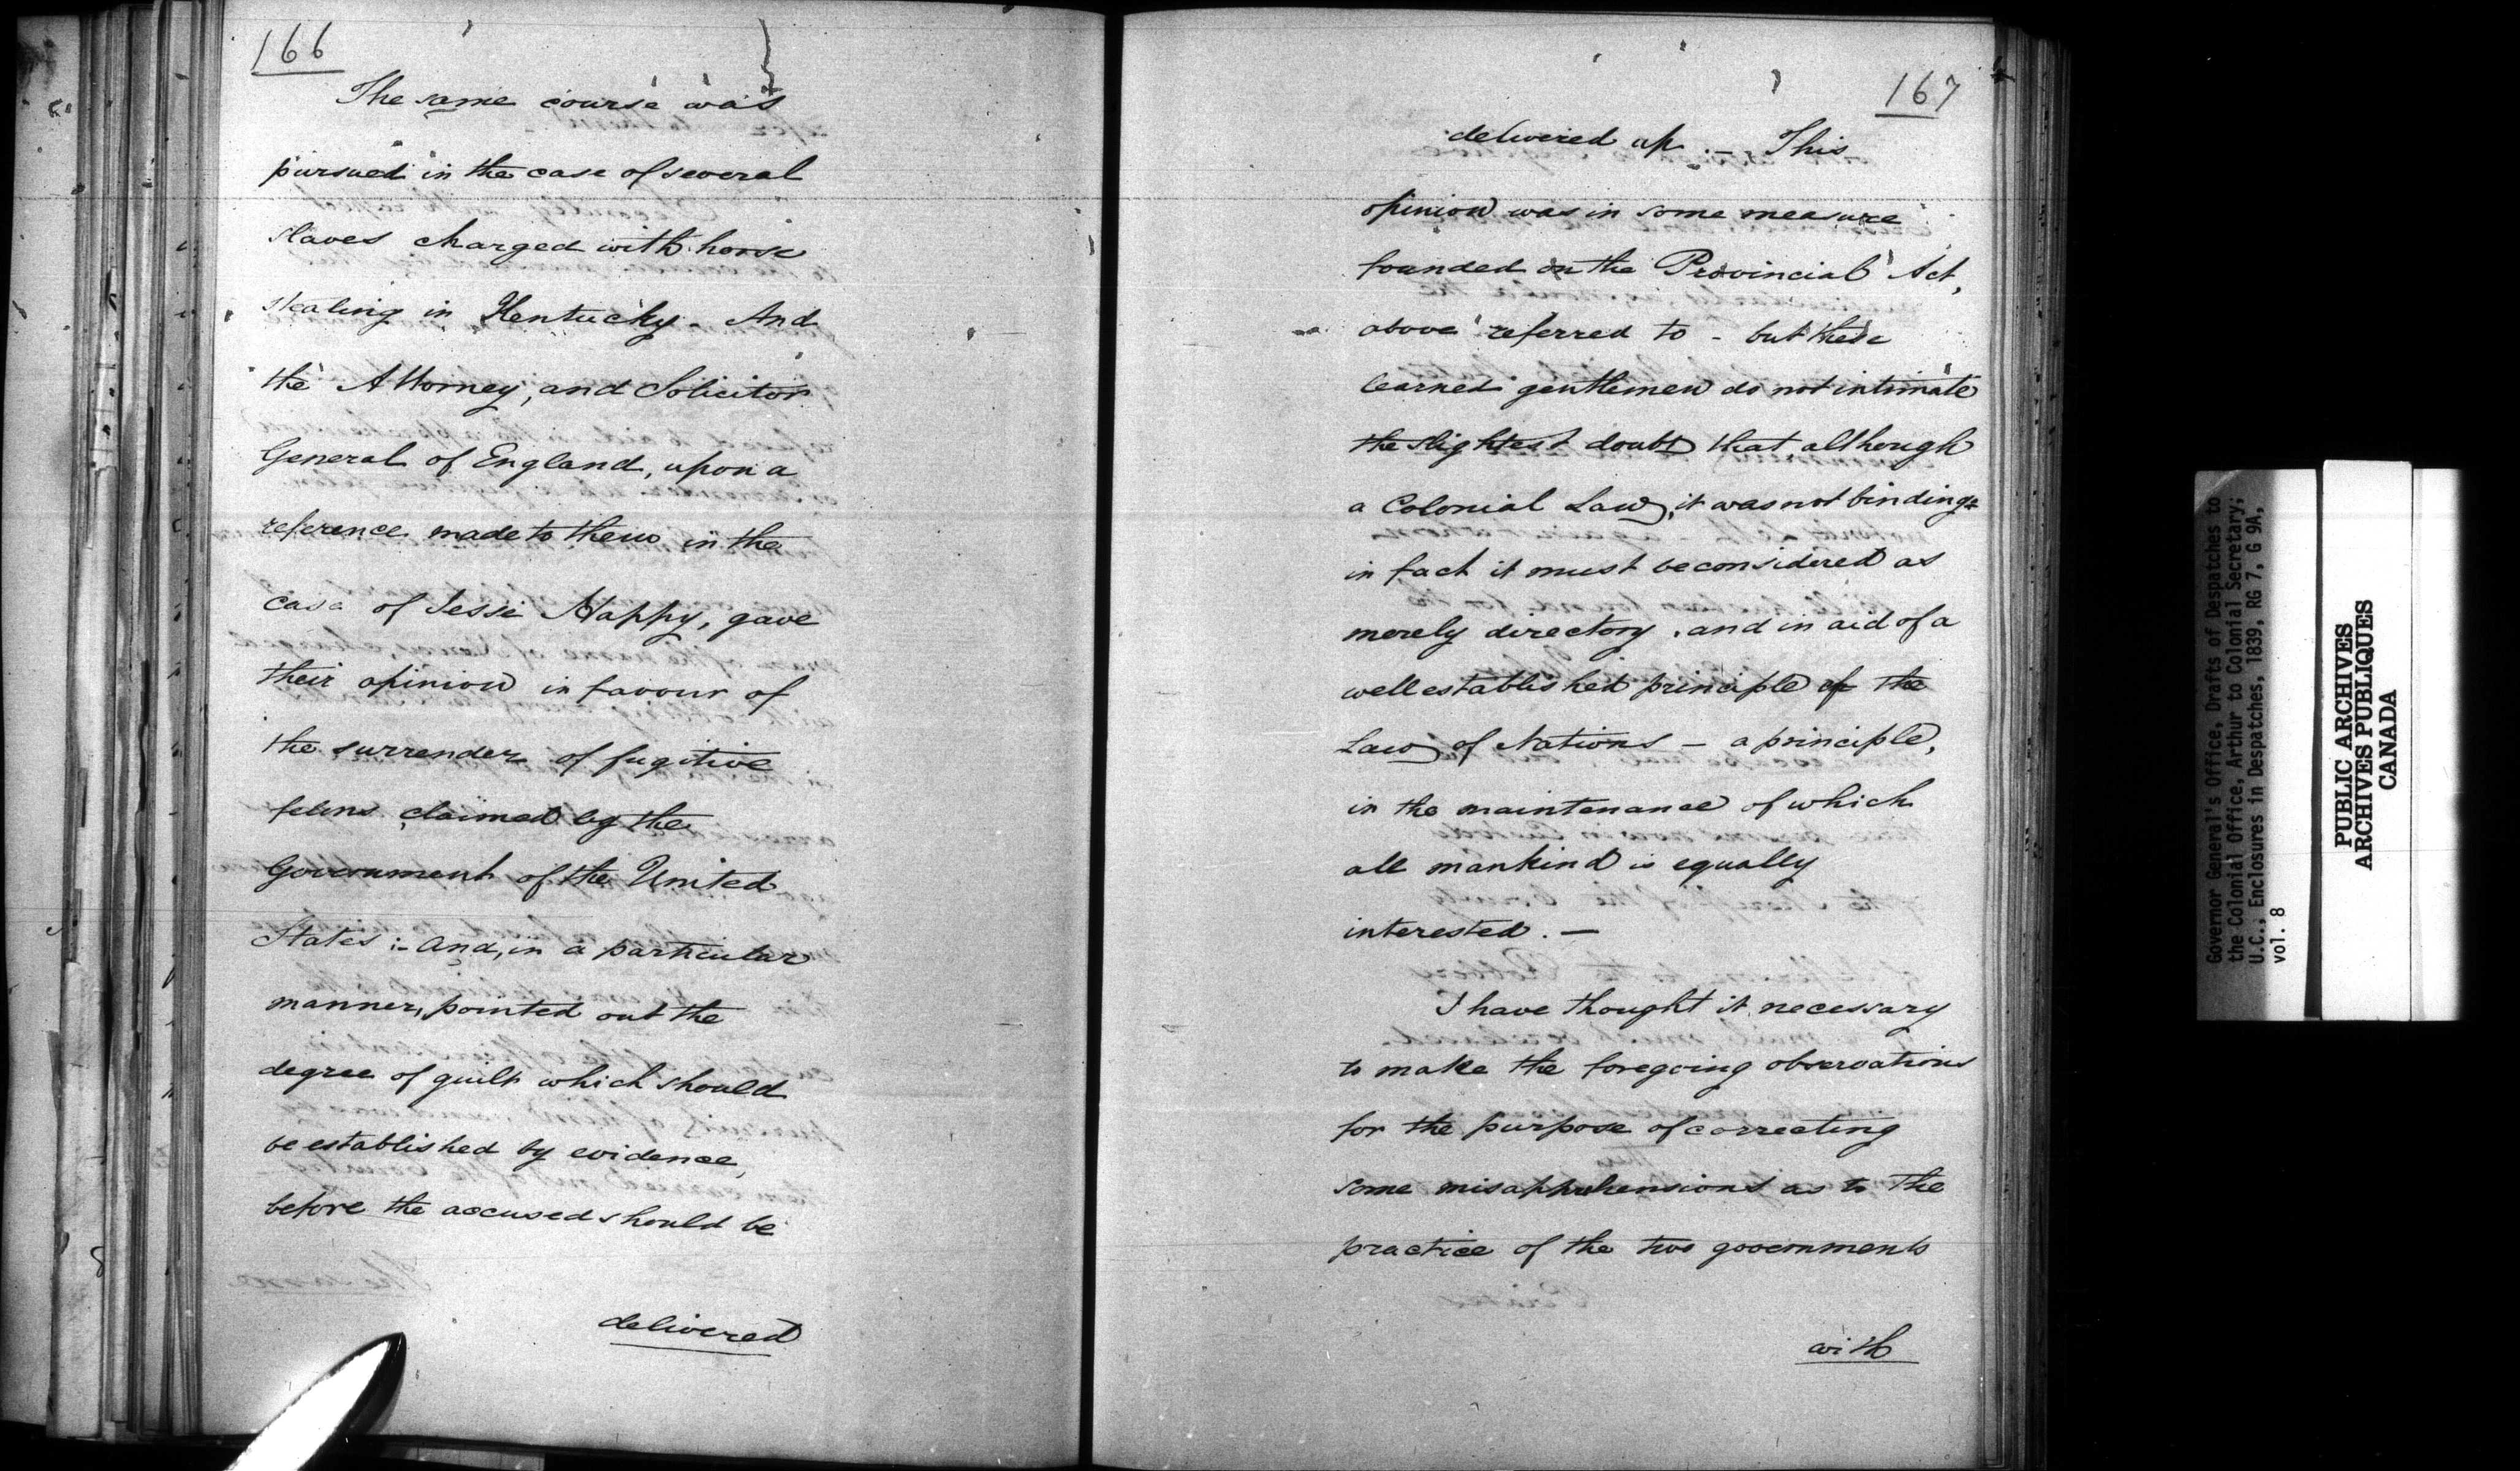 166
The same course was
pursued in the case of several
slaves charged with horse
stealing in Kentucky. And
the Attorney, and Solicitor
General of England, upon a
reference made to them in the
case of Jesse Happy, gave
their opinion in favour of
the surrender of fugitive
felons claimed by the
Government of the United
States :- and, in a particular
manner, pointed out the
degree of guilt which should
be established by evidence,
before the accused should be
delivered
167
delivered up. — This
opinion was in some measure
founded on the Provincial Act,
above referred to - but these
learned gentlemen do not intimate
the slightest doubt that although
a Colonial Law, it was not binding:
in fact it must be considered as
merely directory, and in aid of a
well established principle of the
Law of Nations — a principle,
in the maintenance of which
all mankind is equally
interested. —
I have thought it necessary
to make the foregoing observations
for the purpose of correcting
some misapprehensions as to the
practice of the two governments
with
Governor General's Office, Drafts of Despatches to
the Colonial Office, Arthur to Colonial Secretary;
U.C., Enclosures in Despatches, 1839, RG 7, G 9A,
vol. 8
PUBLIC ARCHIVES
ARCHIVES PUBLIQUES
CANADA